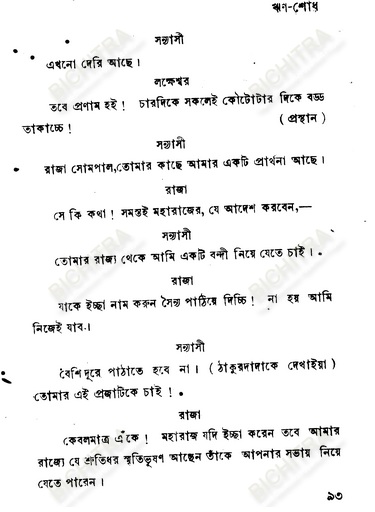 ঋণ-শোধ
সন্ন্যাসী
এখনো দেরি আছে।
লক্ষেশ্বর
তবে প্রণাম হই! চারদিকে সকলেই কৌটোটার দিকে বড্ড
তাকাচ্চে! (প্রস্থান)
সন্ন্যাসী
রাজা সোমপাল, তোমার কাছে আমার একটি প্রার্থনা আছে।
রাজা
সে কি কথা! সমস্তই মহারাজের, যে আদেশ করবেন,—
সন্ন্যাসী
তোমার রাজ্য থেকে আমি একটি বন্দী নিয়ে যেতে চাই।
রাজা
যাকে ইচ্ছা নাম করুন সৈন্য পাঠিয়ে দিচ্চি! না হয় আমি
নিজেই যাব।
সন্ন্যাসী
বেশি দূরে পাঠাতে হবে না। (ঠাকুরদাদাকে দেখাইয়া)
তোমার এই প্রজাটিকে চাই!
রাজা
কেবলমাত্র এঁকে! মহারাজ যদি ইচ্ছা করেন তবে আমার
রাজ্যে যে শ্রুতিধর স্মৃতিভূষণ আছেন তাঁকে আপনার সভায় নিয়ে
যেতে পারেন।
৯৩
BICHITRA